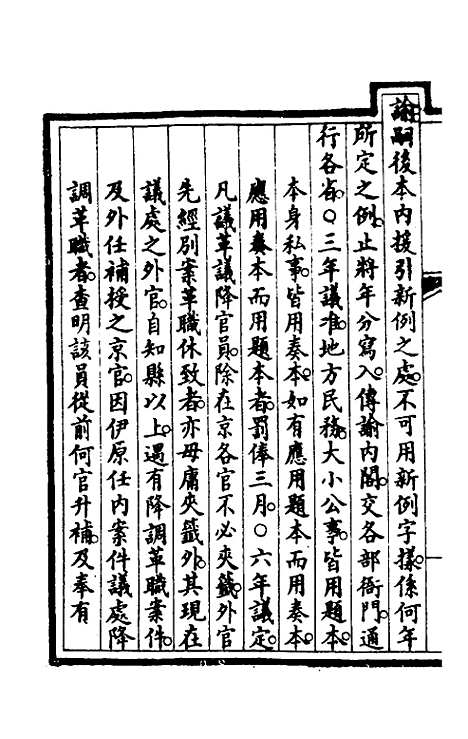 諭嗣後本內援引新例之處。不可用新例字樣。係何年
所定之例。止將年分寫入。傳諭內閣。交各部衙門。通
行各省。○三年議准。地方民務。大小公事。皆用題本。
本身私事。皆用奏本。如有應用題本而用奏本。
應用奏本而用題本者。罰俸三月。○六年議定。
凡議革議降官員。除在京各官不必夾籤。外官
先經別案革職休致者。亦毋庸夾籤外。其現在
議處之外官。自知縣以上。遇有降調革職案件。
及外任補授之京官。因伊原任內案件議處降
調革職者。查明該員從前何官升補。及奉有